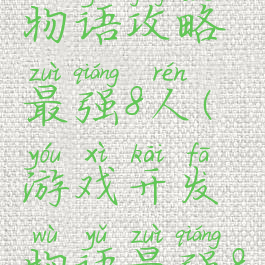 物语攻略
zuì qiáng rén
最强8人(
yóu xì kāi fā
游戏开发
wù yǔ zuì qiáng
物语最强8